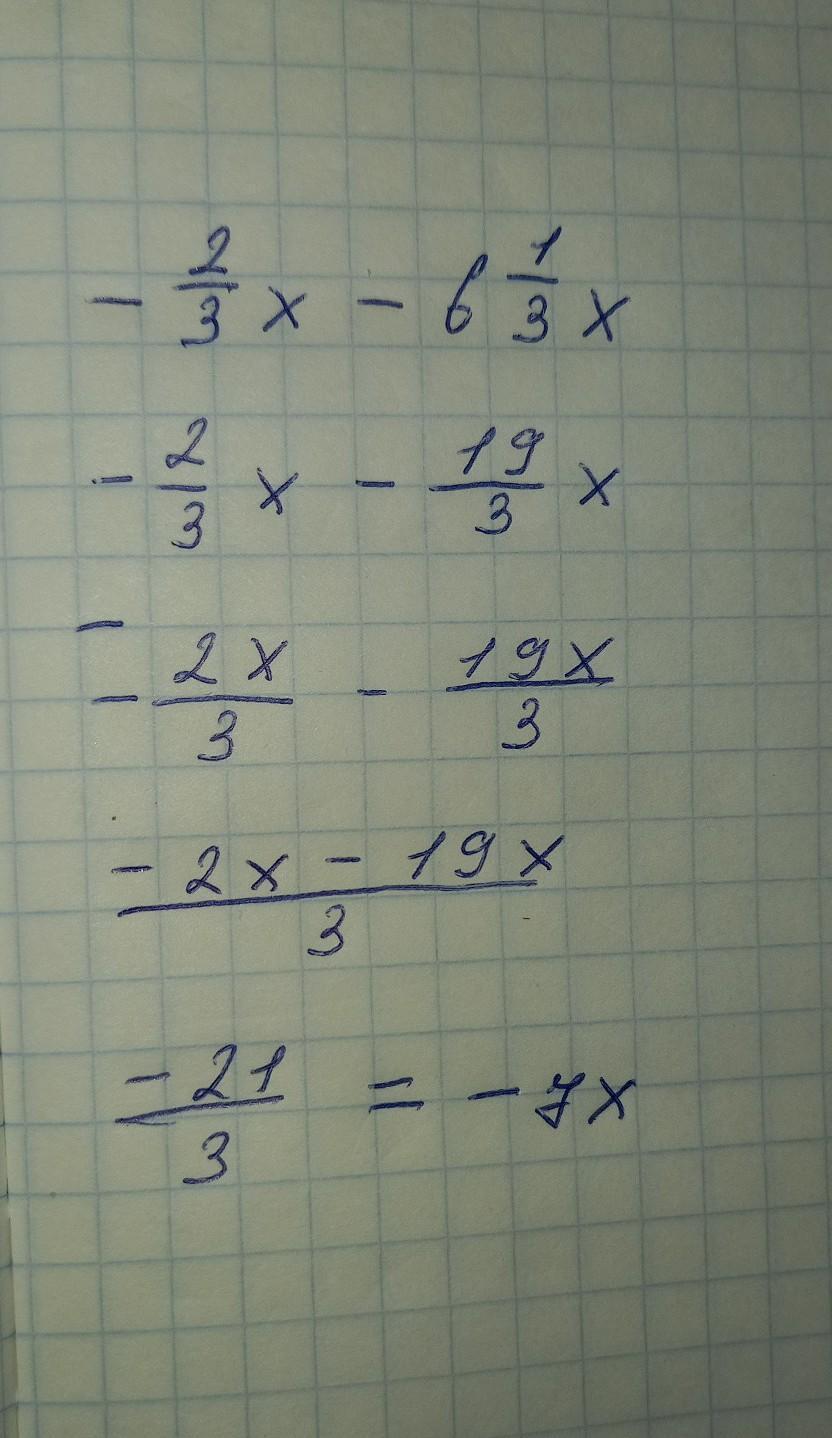 - 2/3 x - 6 1/3 x
- 2/3 x - 19/3 x
- 2x/3 - 19x/3
(- 2x - 19x)/3
-21/3 = -7x